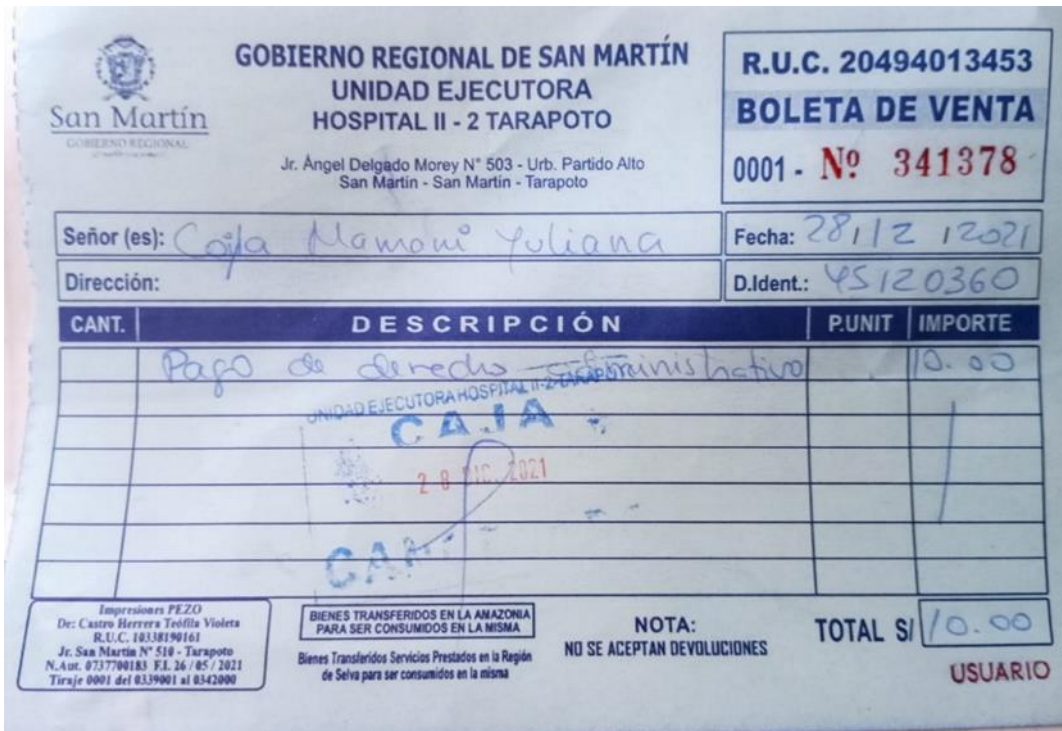 San Martín
GOBIERNO REGIONAL
GOBIERNO REGIONAL DE SAN MARTÍN
UNIDAD EJECUTORA
HOSPITAL II - 2 TARAPOTO
Jr. Ángel Delgado Morey N° 503 - Urb. Partido Alto
San Martin - San Martin - Tarapoto
R.U.C. 20494013453
BOLETA DE VENTA
0001 - Nº 341378
Señor (es): Coila Mamani Yuliana
Fecha: 28/12/2021
Dirección:
D.Ident.: 45120360
CANT. DESCRIPCIÓN P.UNIT IMPORTE
Pago de derecho administrativo 10.00
UNIDAD EJECUTORA HOSPITAL II-2-TARAPOTO
CAJA
28 DIC. 2021
Impresiones PEZO
De: Castro Herrera Teófila Violeta
R.U.C. 10338190161
Jr. San Martin N° 510 - Tarapoto
N.Aut. 0737700183 F.I. 26 / 05 / 2021
Tiraje 0001 del 0339001 al 0342000
BIENES TRANSFERIDOS EN LA AMAZONIA
PARA SER CONSUMIDOS EN LA MISMA
Bienes Transferidos Servicios Prestados en la Región
de Selva para ser consumidos en la misma
NOTA:
NO SE ACEPTAN DEVOLUCIONES
TOTAL S/ 10.00
USUARIO